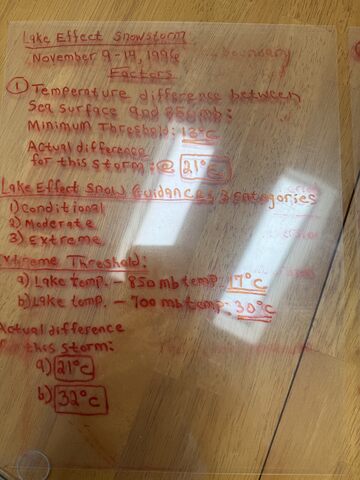 Lake Effect Snowstorm
November 9-14, 1996
boundary
Factors
① Temperature difference between
Sea surface and 850 mb:
Minimum Threshold: 13°C
Actual difference
for this storm: 21°C
Lake Effect Snow Guidance: 3 Categories
1) Conditional
2) Moderate
3) Extreme
Extreme Threshold:
a) Lake temp. - 850 mb temp. 17°C
b) Lake temp. - 700 mb temp: 30°C
Actual difference
this storm:
a) 21°C
b) 32°C